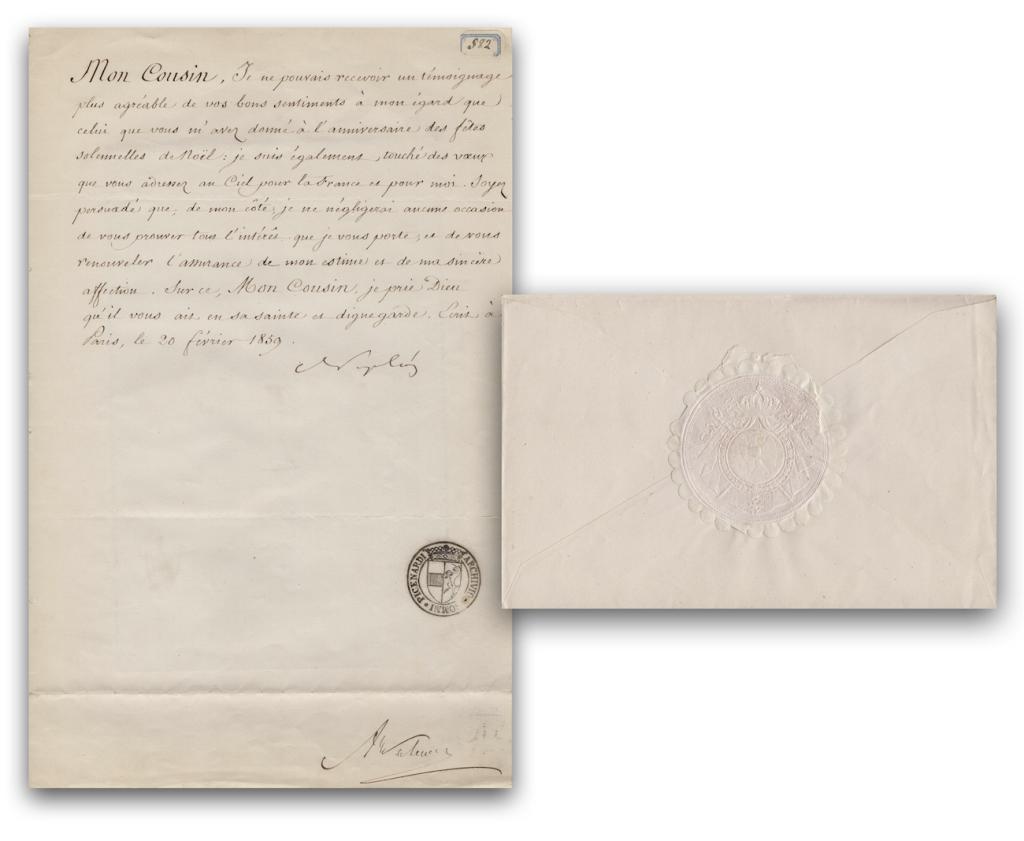 882
Mon Cousin, Je ne pouvais recevoir un témoignage
plus agréable de vos bons sentiments à mon égard que
celui que vous m'avez donné à l'anniversaire des fêtes
solennelles de Noël : je suis également touché des vœux
que vous adressez au Ciel pour la France et pour moi. Soyez
persuadé que, de mon côté, je ne négligerai aucune occasion
de vous prouver tous l'intérêt que je vous porte, et de vous
renouveler l'assurance de mon estime et de ma sincère
affection. Sur ce, Mon Cousin, je prie Dieu
qu'il vous ait en sa sainte et digne garde. Ecrit à
Paris, le 20 février 1859.
Napoléon
PICENARDI ARCHIVII SOMMI
AWalewski